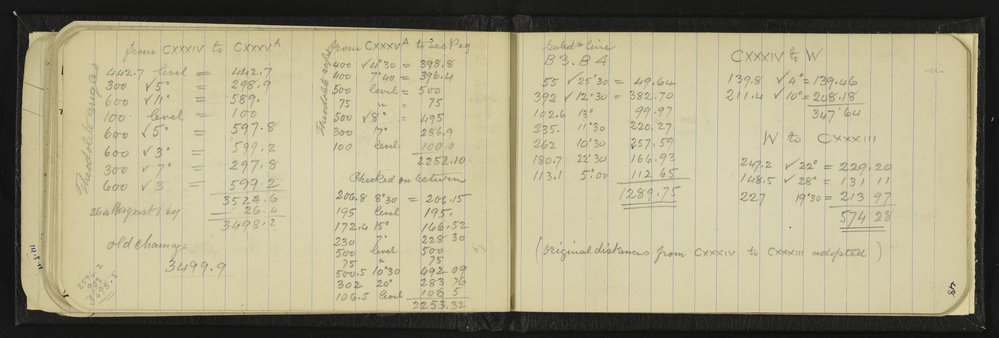 from CXXXIV to CXXXVᴬ
Theodolite angles
442.7 level = 442.7
300 √5° = 298.9
600 √11° = 589.
100 level = 100
600 √5° = 597.8
600 √3° = 599.2
300 √7° = 297.8
600 √3 = 599.2
3524.6
26.4 past Peg - 26.4
3498.2
old chainage
3499.9
3498.2
from CXXXVᴬ to Sea Peg
Theodolite angles
400 √4°30 = 398.8
400 7°40 = 396.4
500 level = 500
75 " = 75
500 √8° = 495
300 7° 286.9
100 level 100.0
2252.10
Checked on return
206.8 8°30 = 206.15
195 level 195.
172.6 15° 166.52
230 7° 228 30
500 level 500
75 " 75
500.5 10°30 492 09
302 20° 283 76
106.5 level 106 5
2253.32
B3.B4
55 √25°30 = 49.64
392 √12°30 = 382.70
102.6 13° 99.97
235. 11°30 220.27
262 10°30 257.59
180.7 22°30 166.93
113.1 5°00 112 65
1289.75
CXXXIV to W
139.8 √4° = 139.46
211.4 √10° = 208.18
347.64
W to CXXXIII
247.2 √22° = 229.20
148.5 √28° = 131 11
227 19°30 = 213 97
574 28
(original distances from CXXXIV to CXXXIII adopted)
48